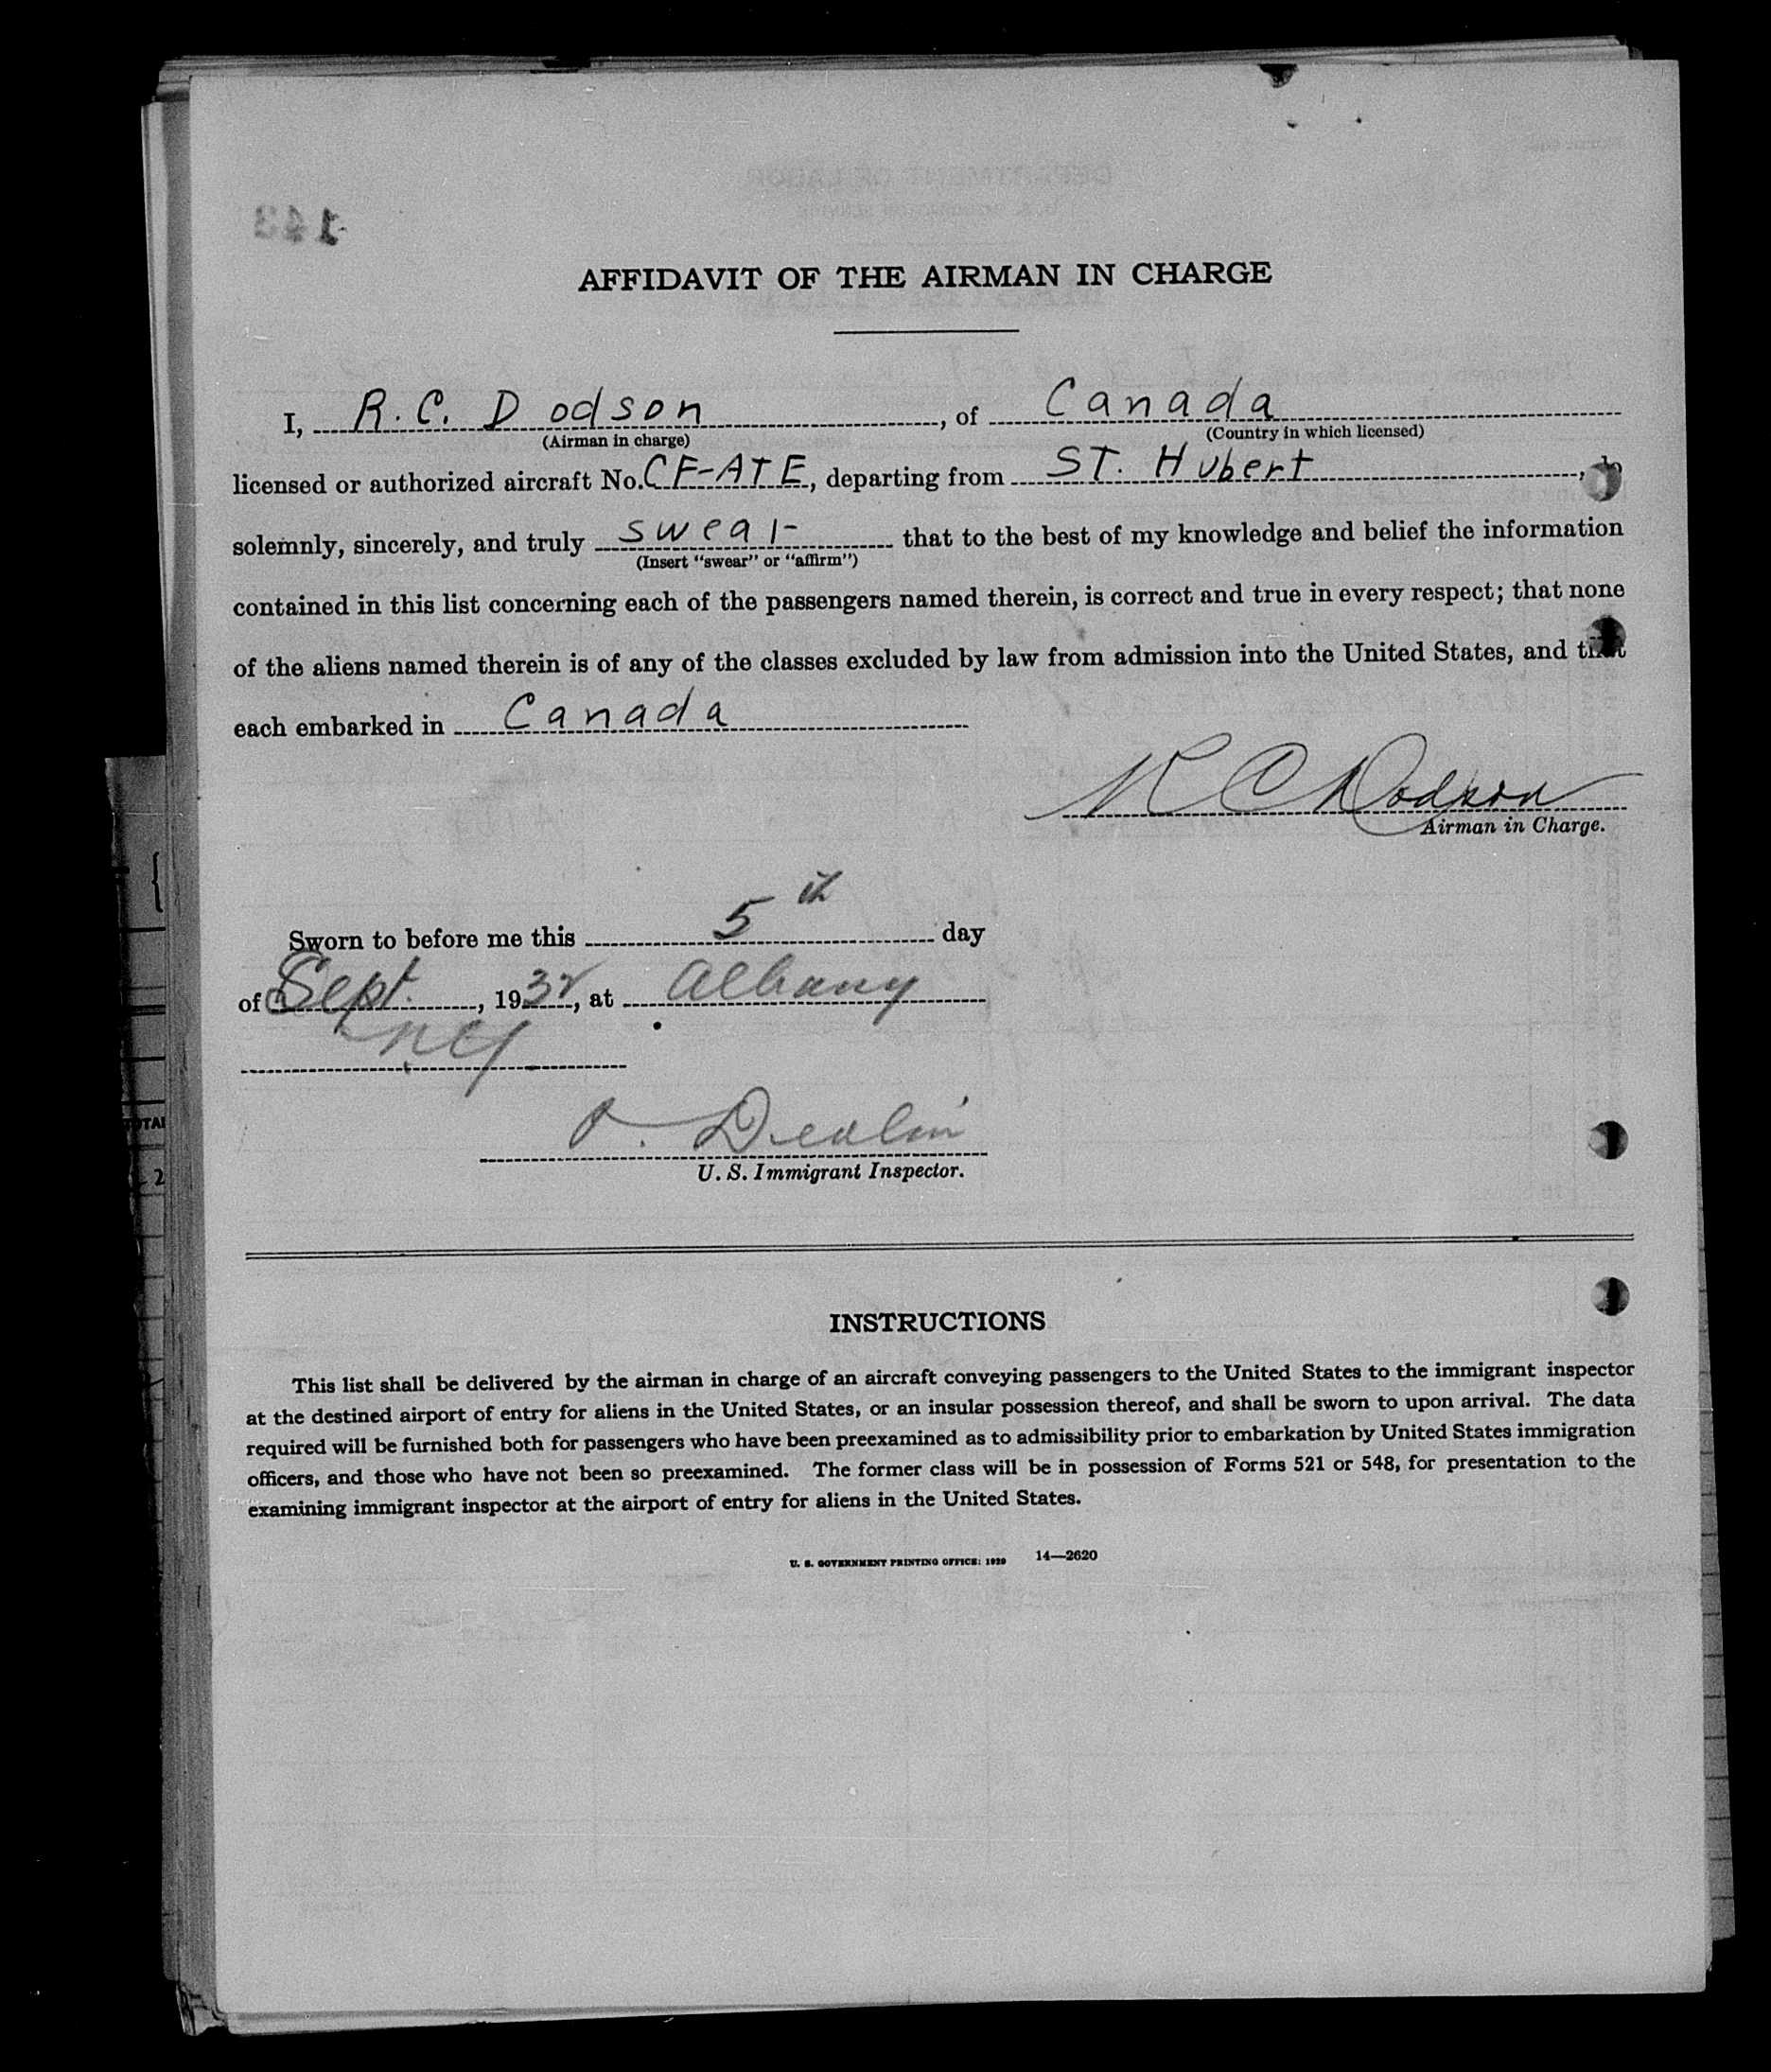 143
AFFIDAVIT OF THE AIRMAN IN CHARGE
I, R. C. Dodson, of Canada
(Airman in charge) (Country in which licensed)
licensed or authorized aircraft No. CF-ATE, departing from ST. Hubert,
solemnly, sincerely, and truly swear that to the best of my knowledge and belief the information
(Insert "swear" or "affirm")
contained in this list concerning each of the passengers named therein, is correct and true in every respect; that none
of the aliens named therein is of any of the classes excluded by law from admission into the United States, and that
each embarked in Canada
R C Dodson
Airman in Charge.
Sworn to before me this 5th day
of Sept., 1932, at Albany
NY
Devlin
U. S. Immigrant Inspector.
INSTRUCTIONS
This list shall be delivered by the airman in charge of an aircraft conveying passengers to the United States to the immigrant inspector
at the destined airport of entry for aliens in the United States, or an insular possession thereof, and shall be sworn to upon arrival. The data
required will be furnished both for passengers who have been preexamined as to admissibility prior to embarkation by United States immigration
officers, and those who have not been so preexamined. The former class will be in possession of Forms 521 or 548, for presentation to the
examining immigrant inspector at the airport of entry for aliens in the United States.
U. S. GOVERNMENT PRINTING OFFICE: 1929 14—2620